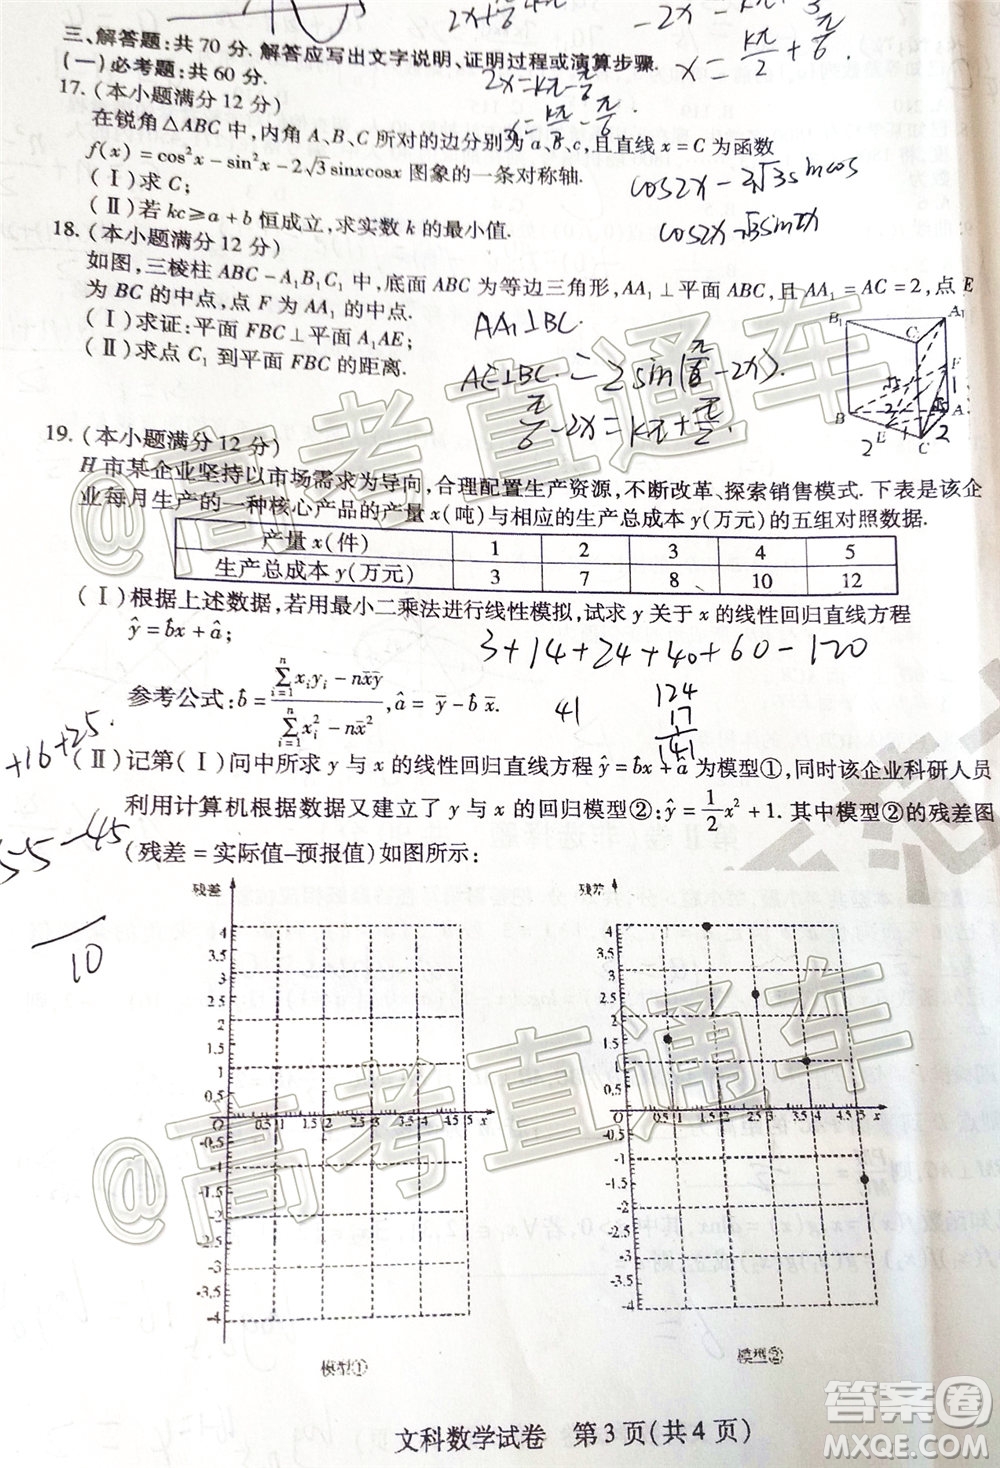 三、解答题:共70分.解答应写出文字说明、证明过程或演算步骤.
(一)必考题:共60分.
17.(本小题满分12分)
在锐角△ABC中,内角A、B、C所对的边分别为a、b、c,且直线x=C为函数
f(x)=cos²x-sin²x-2√3sinxcosx图象的一条对称轴.
(Ⅰ)求C;
(Ⅱ)若kc≥a+b恒成立,求实数k的最小值.
cos2x-2√3sinxcosx
cos2x-√3sin2x
18.(本小题满分12分)
如图,三棱柱ABC-A₁B₁C₁中,底面ABC为等边三角形,AA₁⊥平面ABC,且AA₁=AC=2,点E
为BC的中点,点F为AA₁的中点.
(Ⅰ)求证:平面FBC⊥平面A₁AE;
(Ⅱ)求点C₁到平面FBC的距离.
AA₁⊥BC.
AE⊥BC.
=2sin(π/6-2x).
π/6-2x=kπ+π/2.
B₁ A₁ C₁ F B A E C
19.(本小题满分12分)
H市某企业坚持以市场需求为导向,合理配置生产资源,不断改革、探索销售模式.下表是该企
业每月生产的一种核心产品的产量x(吨)与相应的生产总成本y(万元)的五组对照数据.
产量x(件) 1 2 3 4 5
生产总成本y(万元) 3 7 8 10 12
(Ⅰ)根据上述数据,若用最小二乘法进行线性模拟,试求y关于x的线性回归直线方程
ŷ=b̂x+â;
3+14+24+40+60-120
参考公式:b̂=(∑ᵢ₌₁ⁿxᵢyᵢ-nx̄ȳ)/(∑ᵢ₌₁ⁿxᵢ²-nx̄²),â=ȳ-b̂x̄.
41
124
17
141
+16+25
(Ⅱ)记第(Ⅰ)问中所求y与x的线性回归直线方程ŷ=b̂x+â为模型①,同时该企业科研人员
利用计算机根据数据又建立了y与x的回归模型②:ŷ=1/2x²+1.其中模型②的残差图
(残差=实际值-预报值)如图所示:
55-45
10
残差
4
3.5
3
2.5
2
1.5
1
0.5
O 0.5 1 1.5 2 2.5 3 3.5 4 4.5 5 x
-0.5
-1
-1.5
-2
-2.5
-3
-3.5
-4
模型①
残差
4
3.5
3
2.5
2
1.5
1
0.5
O 0.5 1 1.5 2 2.5 3 3.5 4 4.5 5 x
-0.5
-1
-1.5
-2
-2.5
-3
-3.5
-4
模型②
文科数学试卷 第3页(共4页)
@高考直通车
@高考直通车
答案圈
MXQE.COM